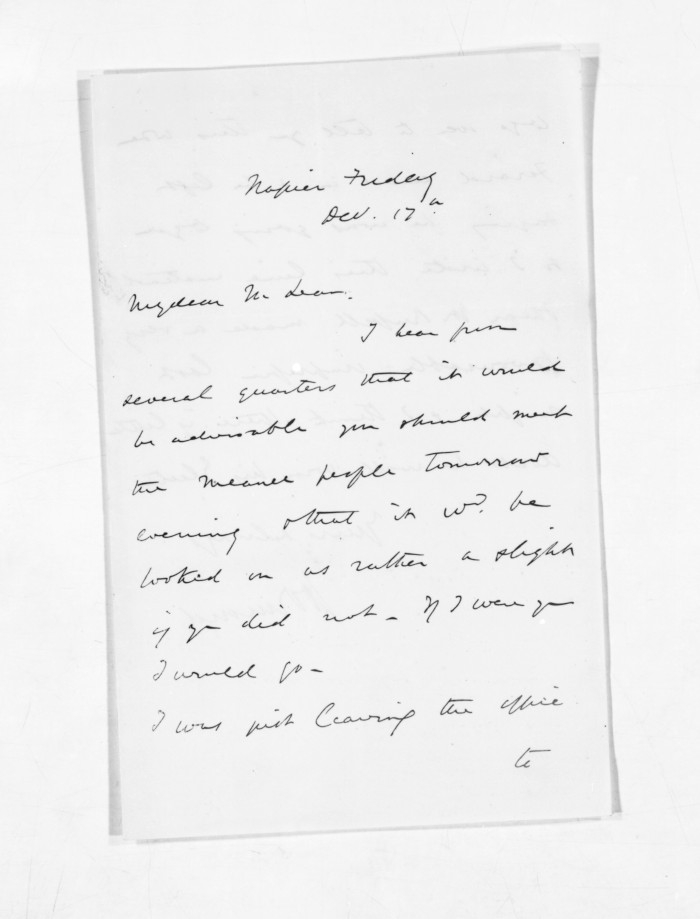 Napier Friday
Dec. 17th
My dear McLean.
I hear from
several quarters that it would
be advisable you should meet
the Meanee people tomorrow
evening & that it wd. be
looked on as rather a slight
if you did not - If I were you
I would go -
I was just leaving the office
to